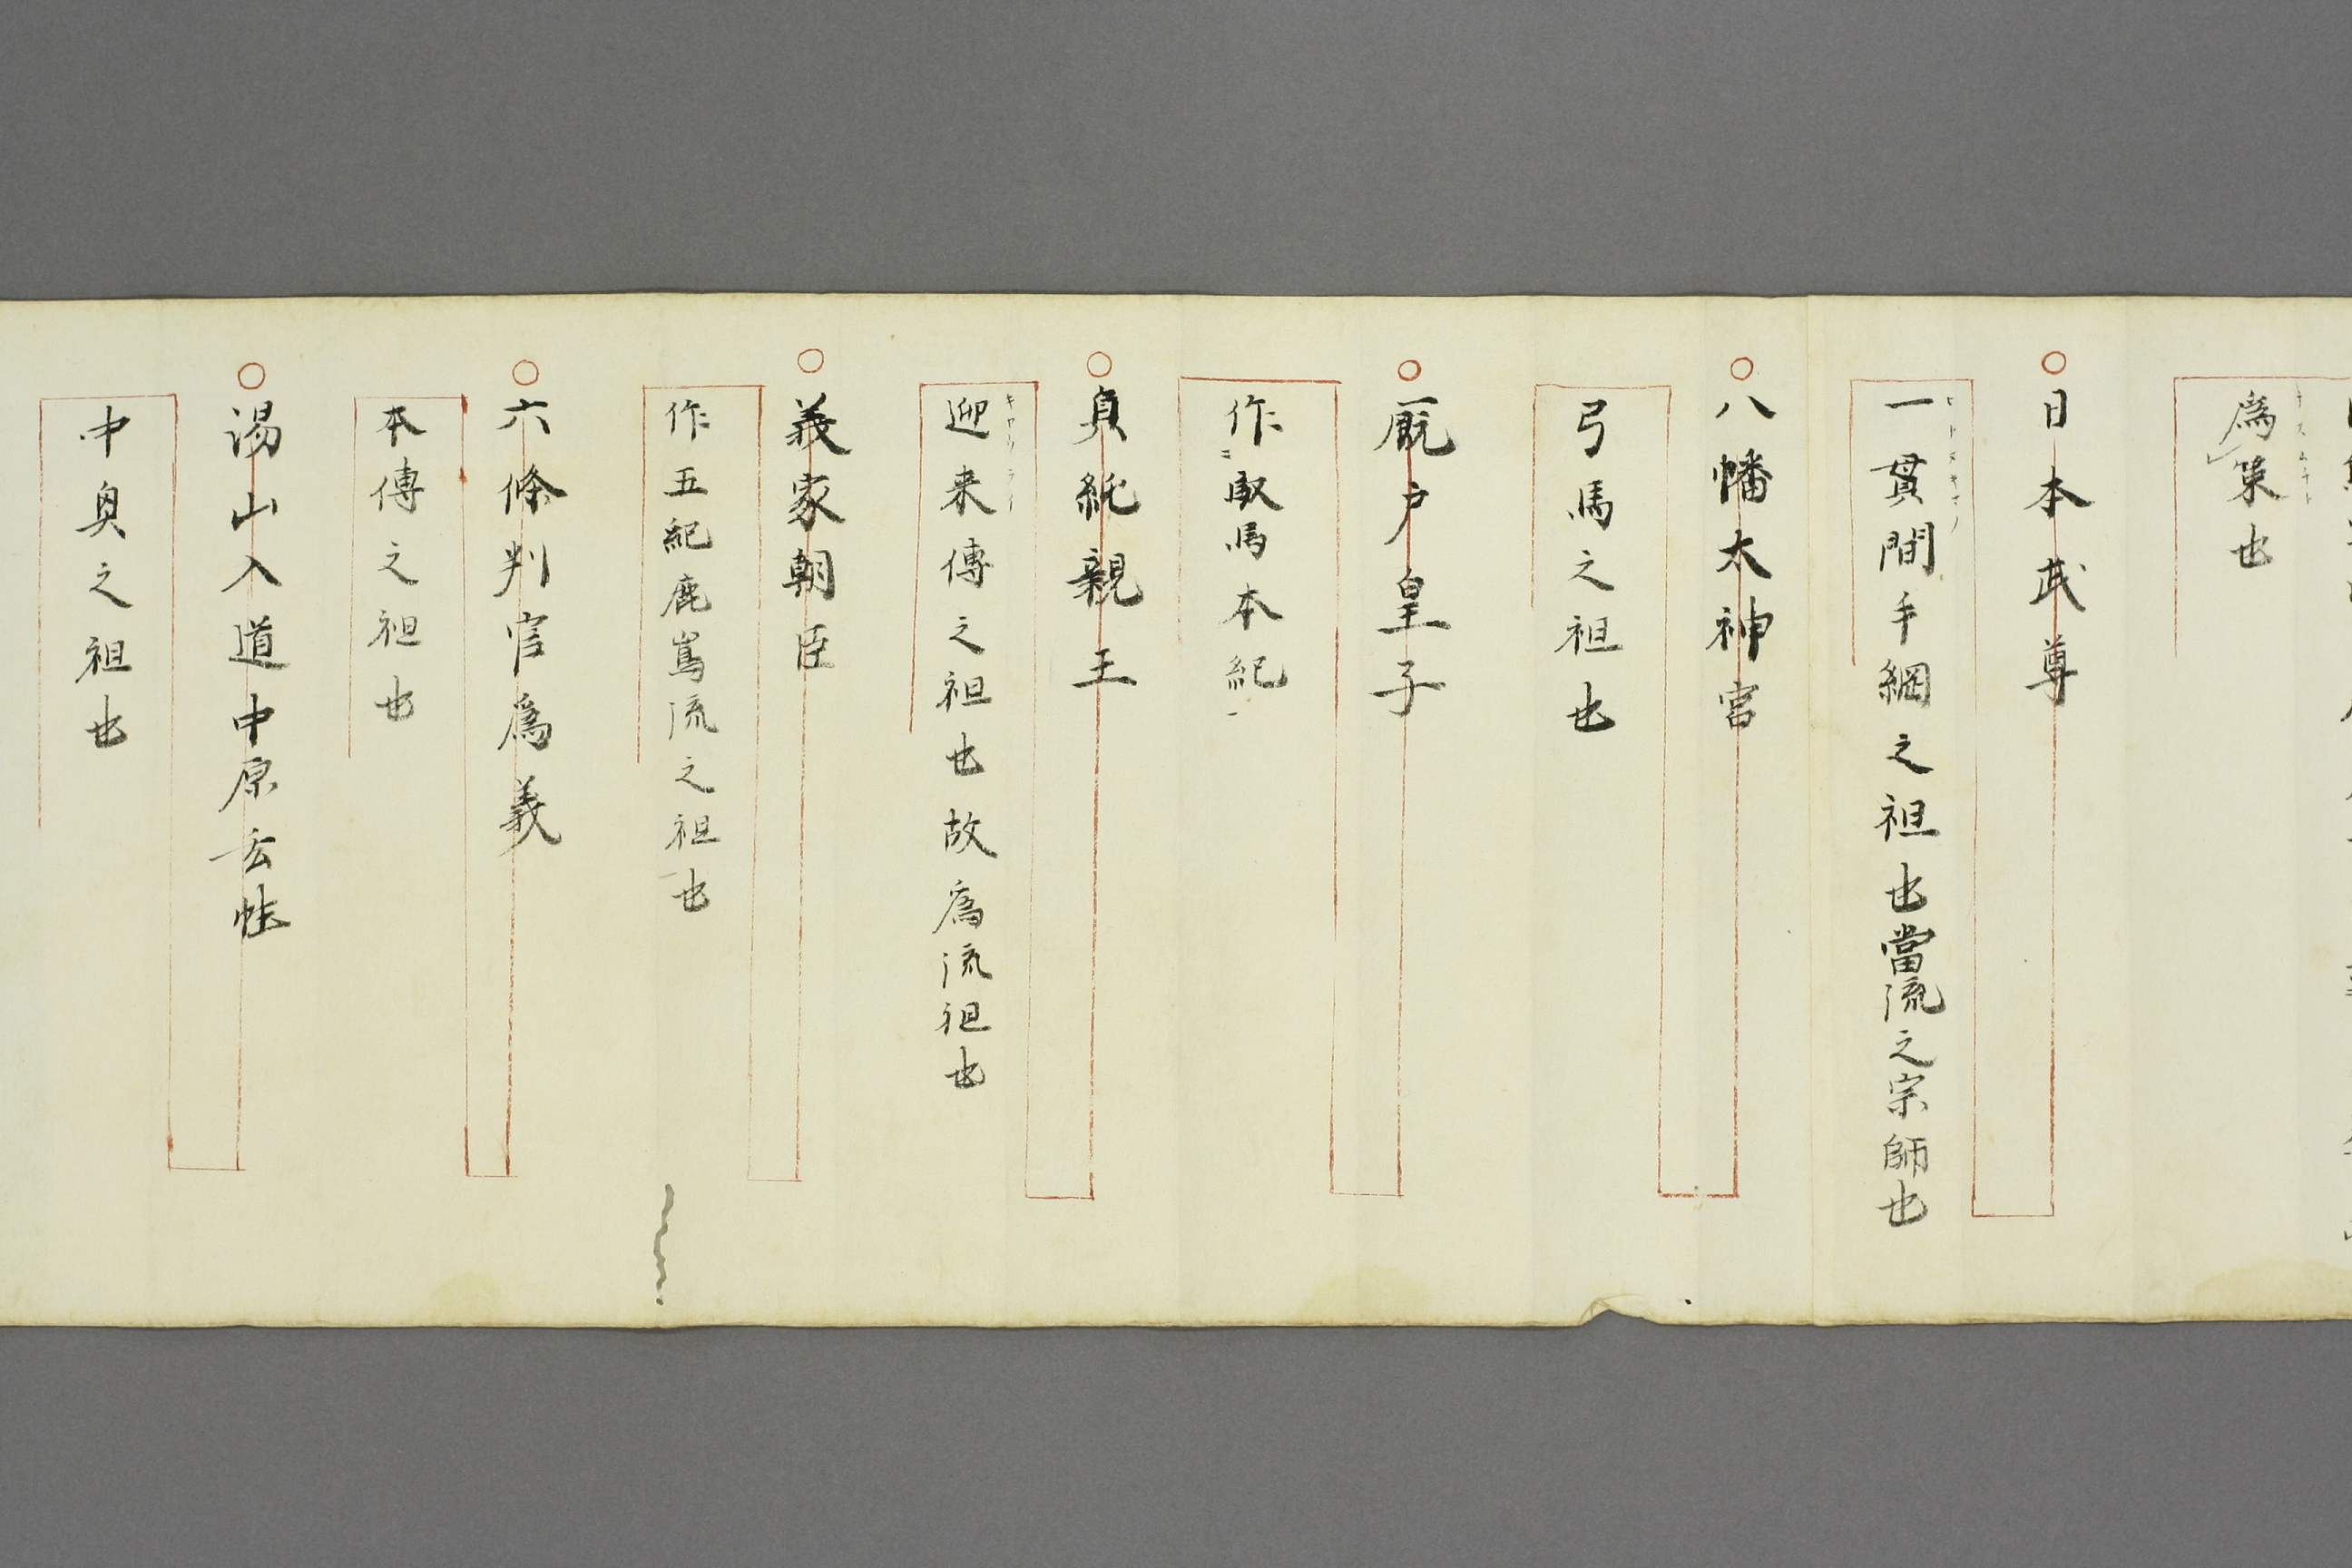 爲策也
日本武尊
一貫間手綱之祖也當流之宗師也
八幡大神宮
弓馬之祖也
厩戸皇子
作馭馬本紀
貞純親王
迎来傳之祖也故爲流祖也
キヤウライ
義家朝臣
作五紀鹿嶌流之祖也
六條判官爲義
本傳之祖也
湯山入道中原玄性
中奥之祖也